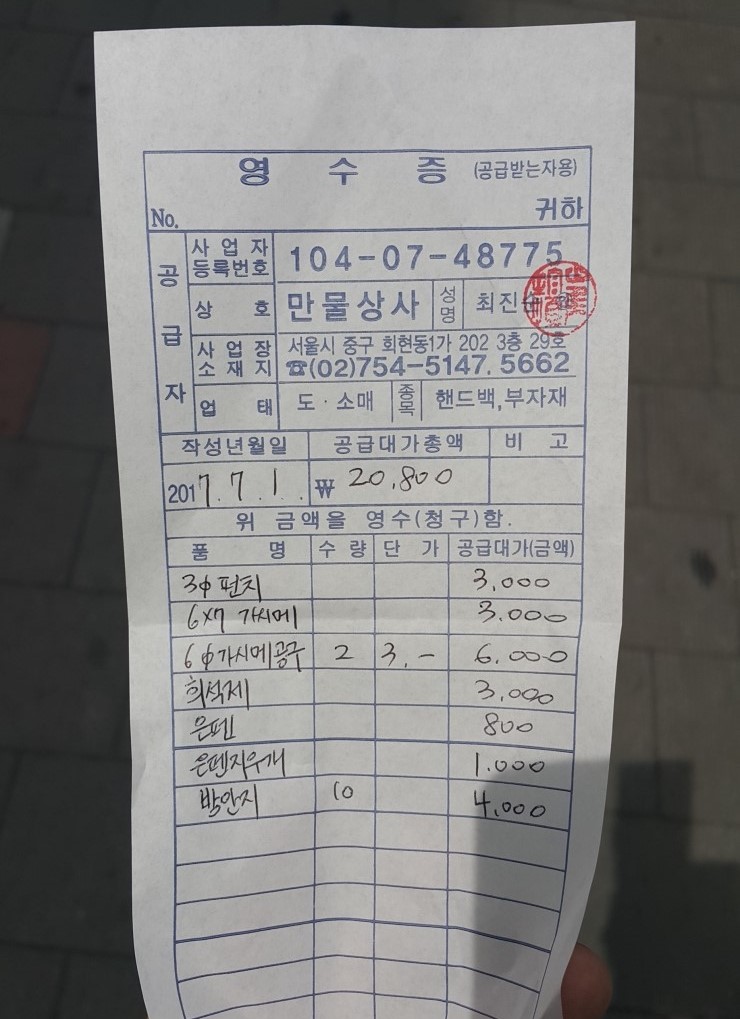 영 수 증 (공급받는자용)
No. 귀하
공급자
사업자등록번호 104-07-48775
상호 만물상사 성명 최진
사업장소재지 서울시 중구 회현동1가 202 3층 29호
☎(02)754-5147. 5662
업태 도·소매 종목 핸드백,부자재
작성년월일 공급대가총액 비고
2017. 7. 1. ₩ 20,800
위 금액을 영수(청구)함.
품명 수량 단가 공급대가(금액)
3φ 펀치 3,000
6×7 가시메 3.000
6φ가시메공구 2 3.- 6.000
희석제 3,000
은펜 800
은펜지우개 1.000
방안지 10 4,000